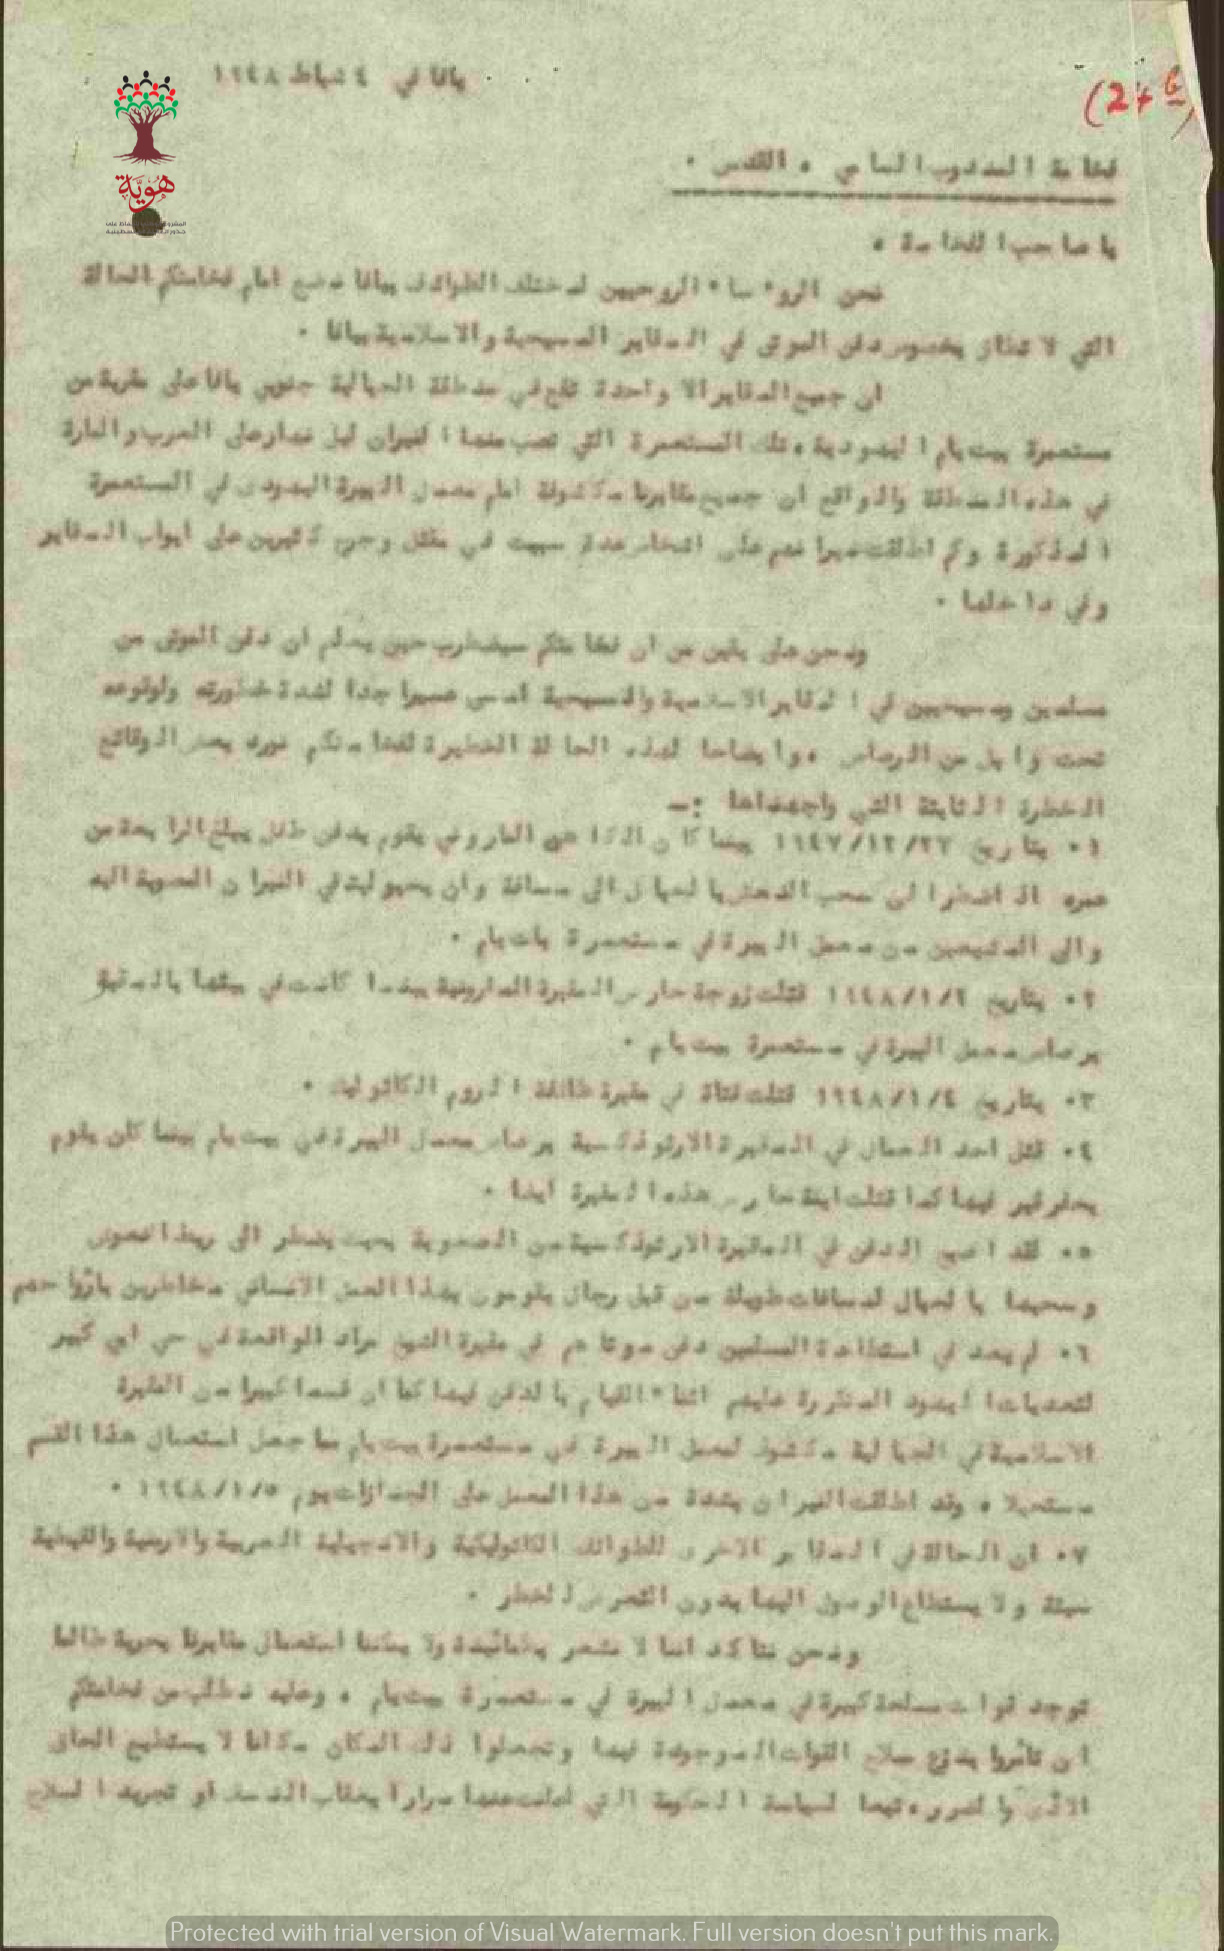 يافا في ٤ شباط ١٩٤٨
(2+6)
هوية
فخامة المندوب السامي ، القدس .
يا صاحب الفخامة ،
نحن الروءساء الروحيين لمختلف الطوائف بيافا نضع امام فخامتكم الحالة
التي لا تطاق بخصوص دفن الموتى في المقابر المسيحية والاسلامية بيافا .
ان جميع المقابر الا واحدة تقع في منطقة الجبالية جنوبي يافا على مقربة من
مستعمرة بيت يام اليهودية ، تلك المستعمرة التي تصب منها النيران ليل نهار على العرب والمارة
في هذه المنطقة والواقع ان جميع مقابرنا مكشوفة امام معمل البيرة اليهودى في المستعمرة
المذكورة وكم اطلقت نيرانهم على اشخاص عدة سببت في مقتل وجرح كثيرين على ابواب المقابر
وفي داخلها .
ونحن على يقين من ان فخامتكم سيضطرب حين يعلم ان دفن الموتى من
مسلمين ومسيحيين في المقابر الاسلامية والمسيحية امسى عسيرا جدا لشدة خطورته ولوقوعه
تحت وابل من الرصاص ، وايضاحا لهذه الحالة الخطيرة لفخامتكم نورد بعض الوقائع
الخطرة الثابتة التي واجهناها :ـ
١. بتاريخ ١٩٤٧/١٢/٢٧ بينما كان الكاهن الماروني يقوم بدفن طفل يبلغ الرابعة من
عمره اذ اضطر الى سحب النعش بالحبال الى مسافة وان يحمولية في النيران المصوبة اليه
والى المشيعين من معمل البيرة في مستعمرة بات يام .
٢. بتاريخ ١٩٤٨/١/٢ قتلت زوجة حارس المقبرة المارونية بينما كانت في بيتها بالمقبرة
برصاص معمل البيرة في مستعمرة بيت يام .
٣. بتاريخ ١٩٤٨/١/٤ قتلت فتاة في مقبرة طائفة الروم الكاثوليك .
٤. قتل احد العمال في المقبرة الارثوذكسية برصاص معمل البيرة في بيت يام بينما كان يقوم
بحفر قبر فيها كما قتلت ابنة حارس هذه المقبرة ايضا .
٥. لقد اصبح الدفن في المقبرة الارثوذكسية من الصعوبة بحيث يضطر الى ربط النعوش
وسحبها بالحبال لمسافات طويلة من قبل رجال يقومون بهذا العمل الانساني مخاطرين بارواحهم
٦. لم يعد في استطاعة المسلمين دفن موتاهم في مقبرة الشيخ مراد الواقعة في حي ابي كبير
لتعديات اليهود المتكررة عليهم اثناء القيام بالدفن فيها كما ان قسما كبيرا من المقبرة
الاسلامية في الجبالية مكشوف لمعمل البيرة في مستعمرة بيت يام مما جعل استعمال هذا القسم
مستحيلا ، وقد اطلقت النيران بشدة من هذا المعمل على الجنازات يوم ١٩٤٨/١/٥ .
٧. ان الحالة في المقابر الاخرى للطوائف الكاثوليكية والانجيلية العربية والارمنية والقبطية
سيئة ولا يستطاع الوصول اليها بدون التعرض للخطر .
ونحن نتأكد اننا لا نشعر بطمأنينة ولا يمكننا استعمال مقابرنا بحرية طالما
توجد قوات مسلحة كبيرة في معمل البيرة في مستعمرة بيت يام ، وعليه نطلب من فخامتكم
ان تأمروا بنزع سلاح القوات الموجودة فيها وتجعلوا ذلك المكان مكانا لا يستطيع الحاق
الاذى والضرر ، تبعا لسياسة الحكومة التي اعلنت عنها مرارا بعقاب النسف او تجريد السلاح
Protected with trial version of Visual Watermark. Full version doesn't put this mark.